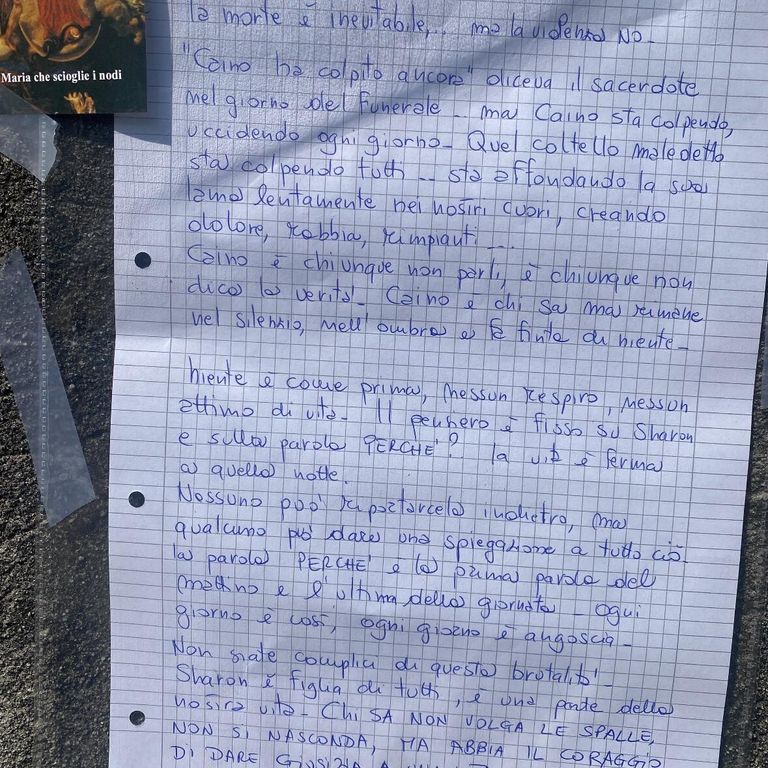 Maria che scioglie i nodi
la morte è inevitabile,.. ma la violenza NO_
"Caino ha colpito ancora" diceva il sacerdote
nel giorno del funerale _ ma Caino sta colpendo,
uccidendo ogni giorno_ Quel coltello maledetto
sta colpendo tutti _ _ sta affondando la sua
lama lentamente nei nostri cuori, creando
dolore, rabbia, rimpianti _ _ _
Caino è chiunque non parli, è chiunque non
dica la verità_ Caino è chi sa ma rimane
nel silenzio, nell'ombra e fa finta di niente_
niente è come prima, nessun respiro, nessun
attimo di vita_ Il pensiero è fisso su Sharon
e sulla parola PERCHE'? la vita è ferma
a quella notte.
Nessuno può riportarcela indietro, ma
qualcuno può dare una spiegazione a tutto ciò_
la parola PERCHE' è la prima parola del
mattino e l'ultima della giornata _ ogni
giorno è così, ogni giorno è angoscia_
Non siate complici di questa brutalità_
Sharon è figlia di tutti, è una parte della
nostra vita_ Chi SA NON VOLGA LE SPALLE,
NON SI NASCONDA, MA ABBIA IL CORAGGIO
DI DARE GIUSTIZIA A